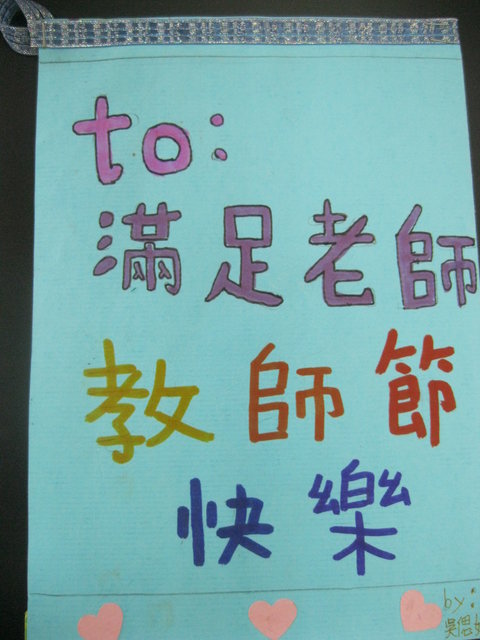 to:
滿足老師
教師節
快樂
by:
吳偲